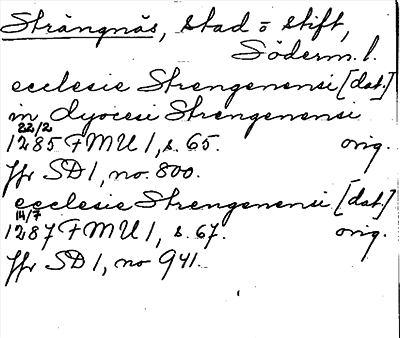 Strängnäs, stad o stift,
Söderm. l.
ecclesie Strengenensi [dat.]
in dyocesi Strengenensi
22/2
1285 FMU 1, s. 65. orig.
Jfr SD 1, no. 800.
ecclesie Strengenensi [dat.]
14/7
1287 FMU 1, s. 67. orig.
Jfr SD 1, no 941.